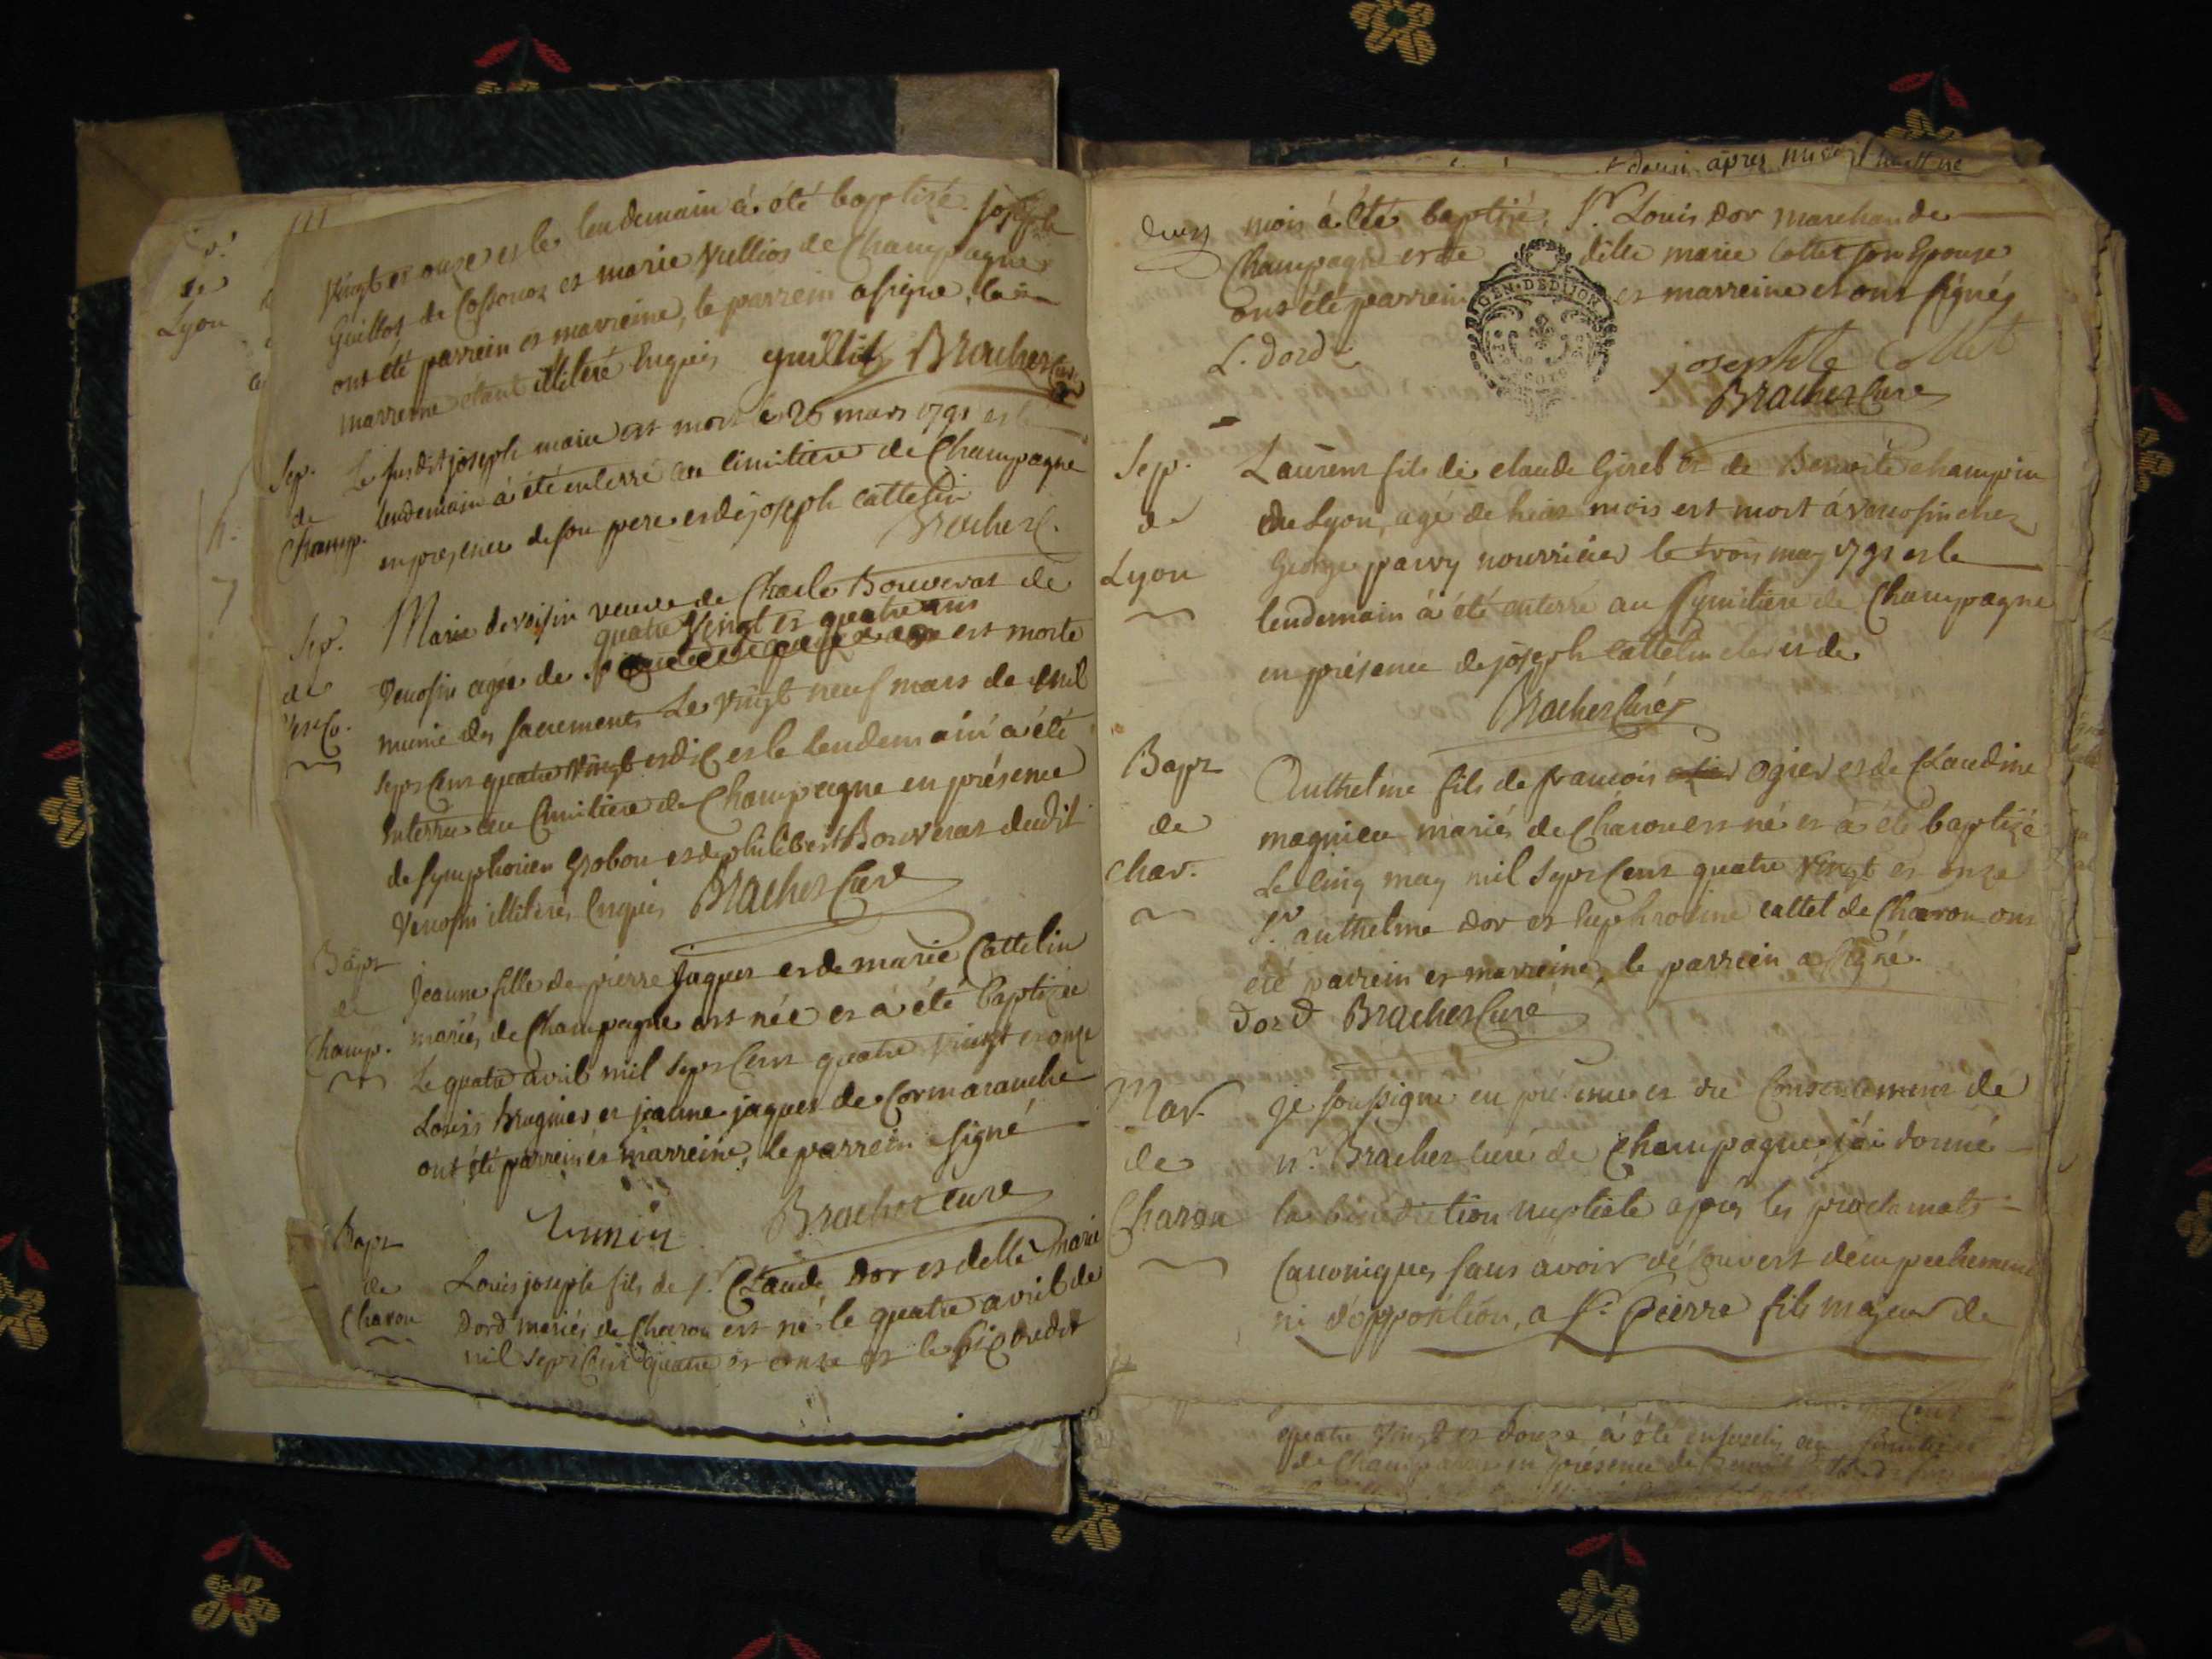 Vingt et onze et le lendemain à été baptizé. joseph
Guillot de Cossonas et marie Vullios de Champagne
ont été parrein et marreine, le parrein a signé, la
marreine étant illiteré Enquis
Bracher Curé
Sep. Le susdit joseph marie est mort le 26 mars 1791 et le
de lendemain à été enterré au cimitiere de Champagne
Champ. en presence de son pere et de joseph cattelin
Bracher C.
Sep. Marie devoisin veuve de Charle Bouveras de
quatre Vingt et quatre ans
de Venosin agée de est morte
munie des sacrements Le Vingt neuf mars de mil
sept Cent quatre Vingt et dix et le lendemain a été
Enterrée au Cimitiere de Champagne en présence
de symphorien Grobon et de philibert Bouveras dudit
Venosin illiterés Enquis Bracher Curé
Bapt Jeanne fille de pierre Jaques et de marie Cattelin
de mariés de Champagne est née et a été baptizée
Champ. Le quatre avril mil sept Cent quatre Vingt et onze
Louis Brugnier et jeanne jaques de Cormaranche
ont été parrein et marreine, le parrein a signé
Bracher Curé
Bapt Louis joseph fils de Sr. Claude Dor et de delle marie
de Dord mariés de Charon est né le quatre avril de
Charon mil sept Cent quatre et onze et le six dudit
mois à été baptizé, Sr. Louis Dor marchand de
Champagne et de delle marie Collet son Epouse
GEN. DE DIJON
ont été parrein et marreine et ont signés
L. Dord
josephte Collet
Bracher Curé
Sep. Laurent fils de claude Giret et de Benoite champin
de de Lyon, agé de huit mois est mort à venosin chez
Lyon George parvy nourricier le trois may 1791 et le
lendemain à été enterré au Cymitiere de Champagne
en présence de joseph Cattelin clerc et de
Bracher Curé
Bapt Anthelme fils de francois ogier et de Claudine
de magnieu mariés de Charon est né et à été baptizé
Char. Le cinq may mil sept Cent quatre Vingt et onze
Sr. anthelme Dor et Euphrosine cattet de Charon ont
été parrein et marreine, le parrein a signé.
Dord Bracher Curé
Mar. je soussigné en présence et du Consentement de
de Mr. Bracher curé de Champagne, j'ai donné
Charon la bénédiction nuptiale après les proclamats
Canoniques sans avoir découvert d'empechement
ni d'opposition, a Sr. Pierre fils majeur de
quatre Vingt et douze à été enseveli au
de Champagne en présence de Benoit